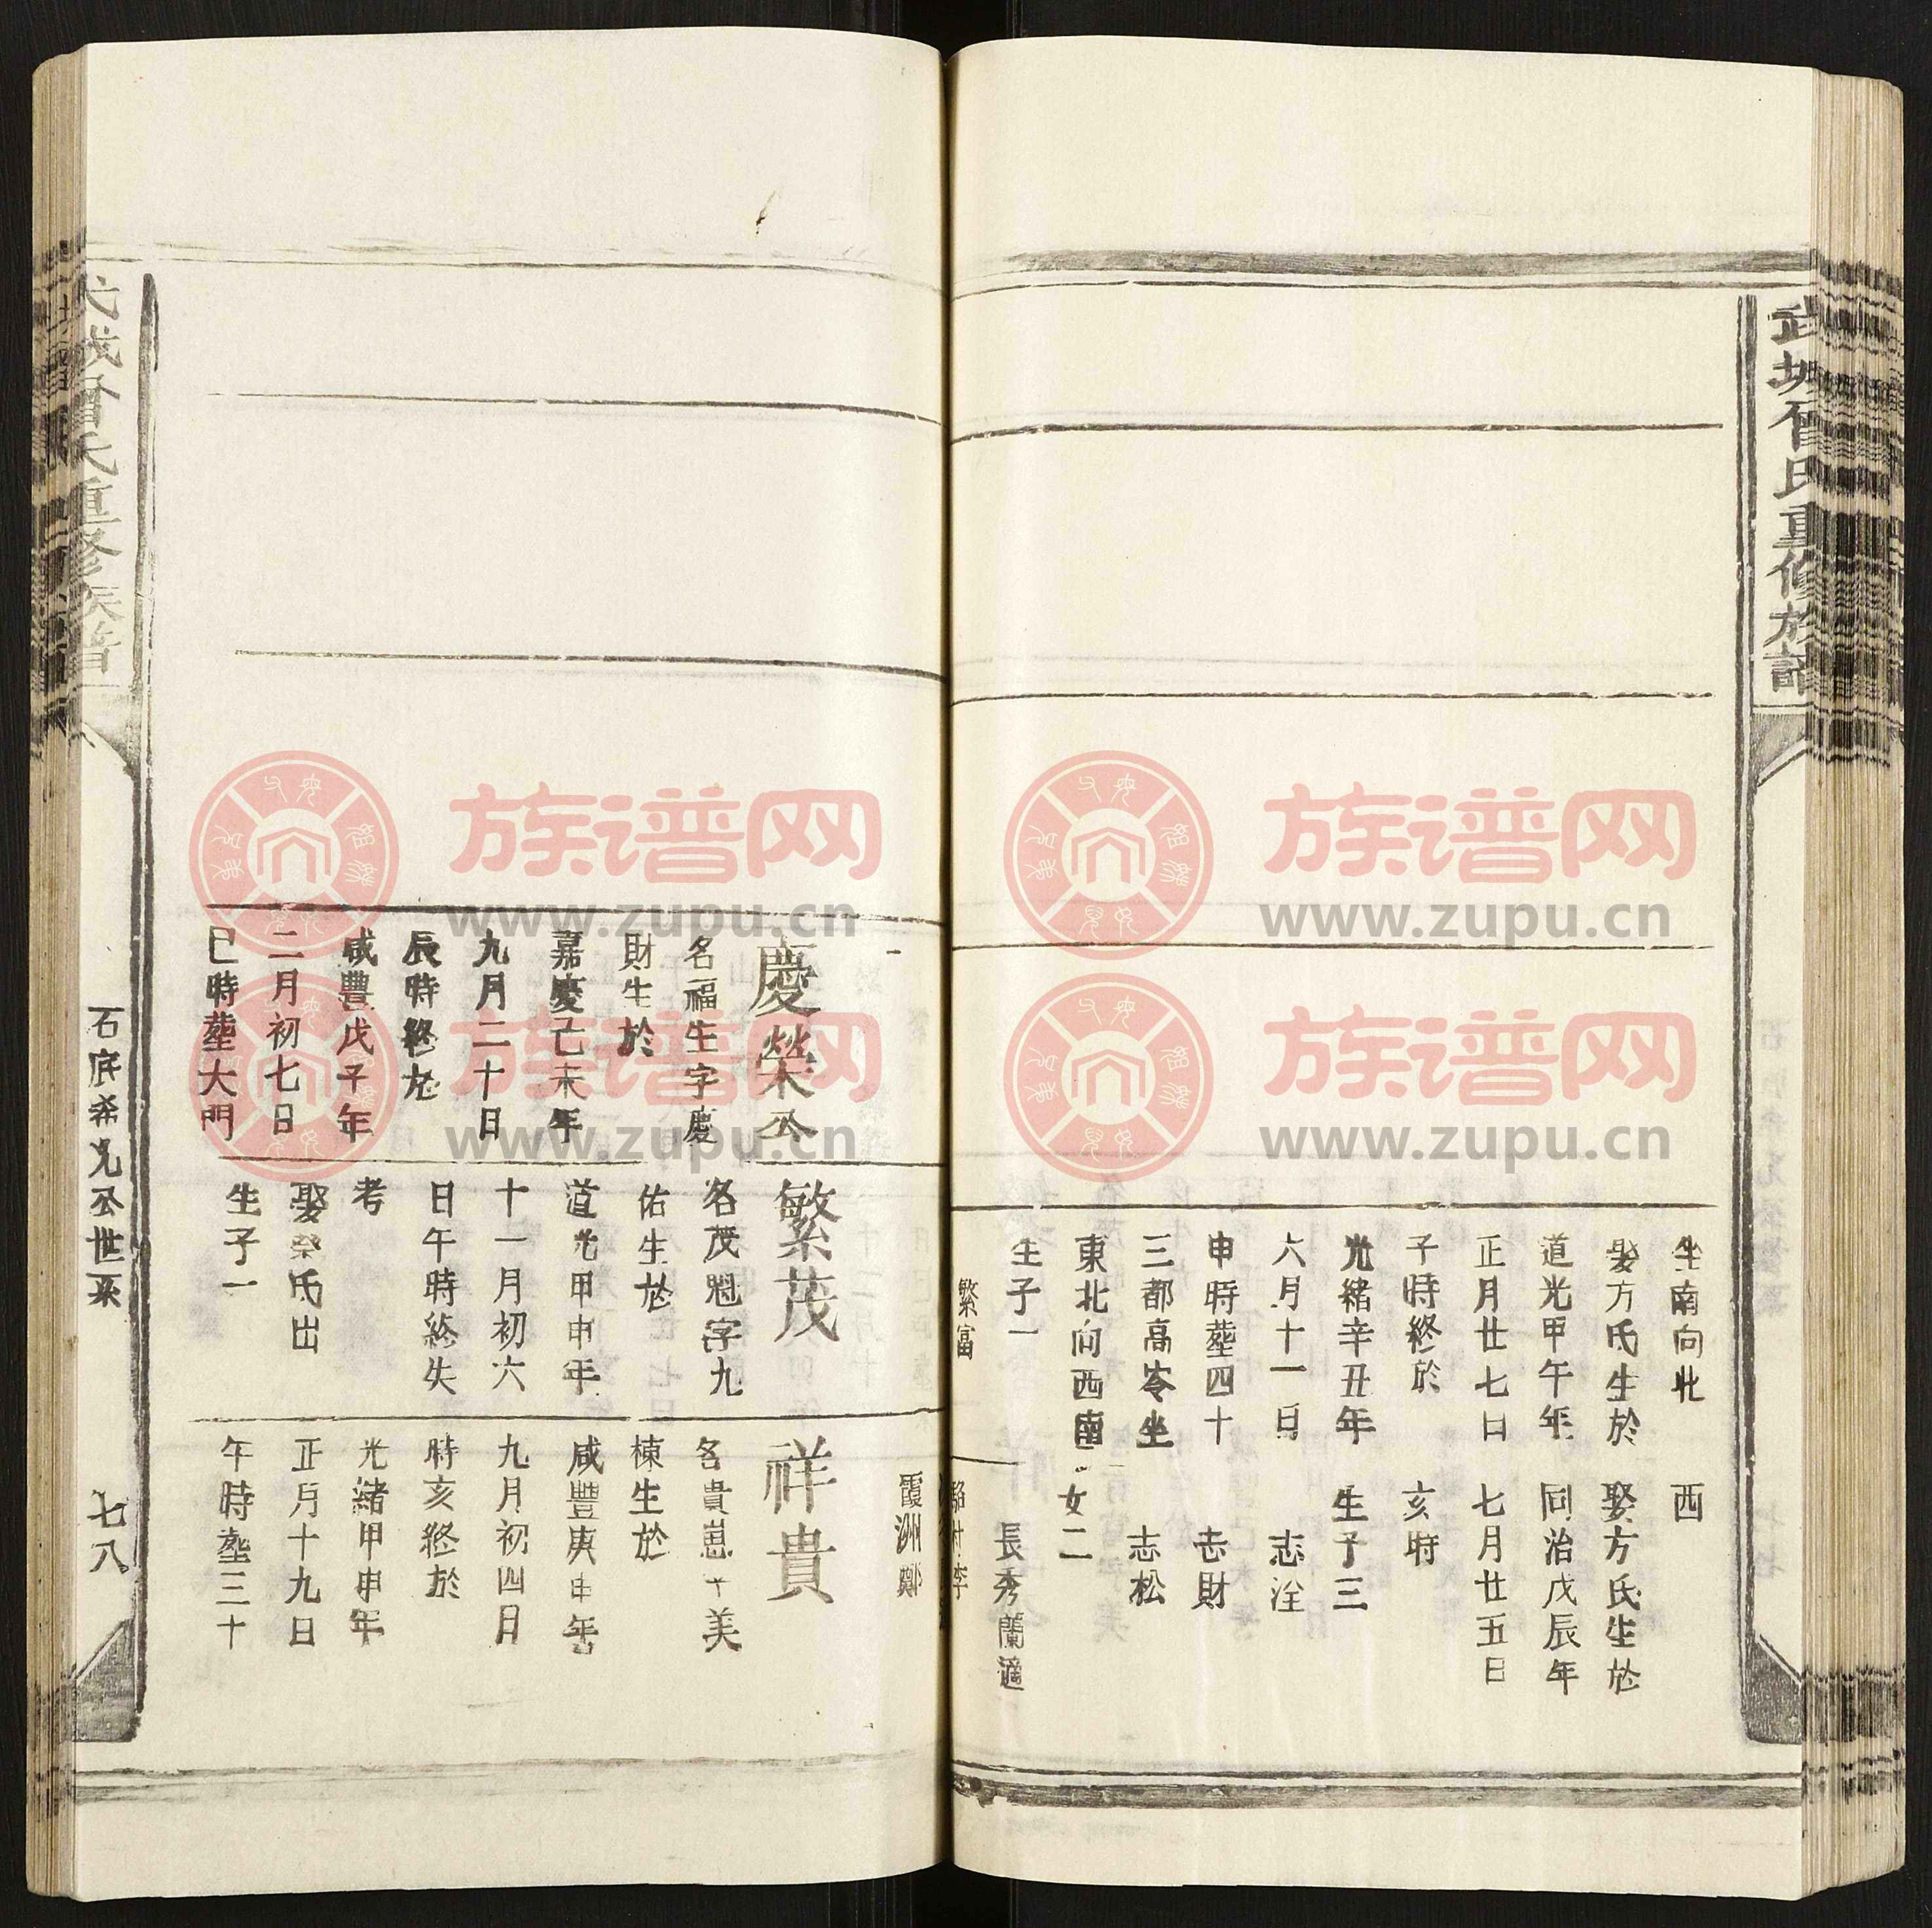 武城曾氏重修族譜
坐南向北
娶方氏生於
道光甲午年
正月廿七日
子時終於
光緒辛丑年
六月十一日
申時塟四十
三都高岺坐
東北向西南
生子一
繁富
西
娶方氏生於
同治戊辰年
七月廿五日
亥時
生子三
志洤
志財
志松
女二
長秀蘭適
霞洲鄭
慶榮公
名福生字慶
財生於
嘉慶己未年
九月二十日
辰時終於
咸豐戊子年
二月初七日
巳時塟大門
繁茂
名茂魁字九
佑生於
道光甲申年
十一月初六
日午時終失
考
娶榮氏出
生子一
祥貴
名貴崽字美
棟生於
咸豐庚申年
九月初四日
時亥終於
光緒甲申年
正月十九日
午時塟三十
武城曾氏重修族譜
石底希光公世系
七八
族谱网
www.zupu.cn
族谱网
www.zupu.cn
族谱网
www.zupu.cn
族谱网
www.zupu.cn